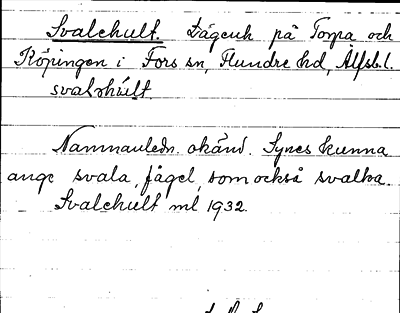 Svalehult. Lägenh på Torpa och
Röpingen i Fors sn, Flundre hd, Älfsb. l.
svalshúlt
Namnanledn. okänd. Synes kunna
ange svala, fågel, som också svalka.
Svalehult ml 1932.